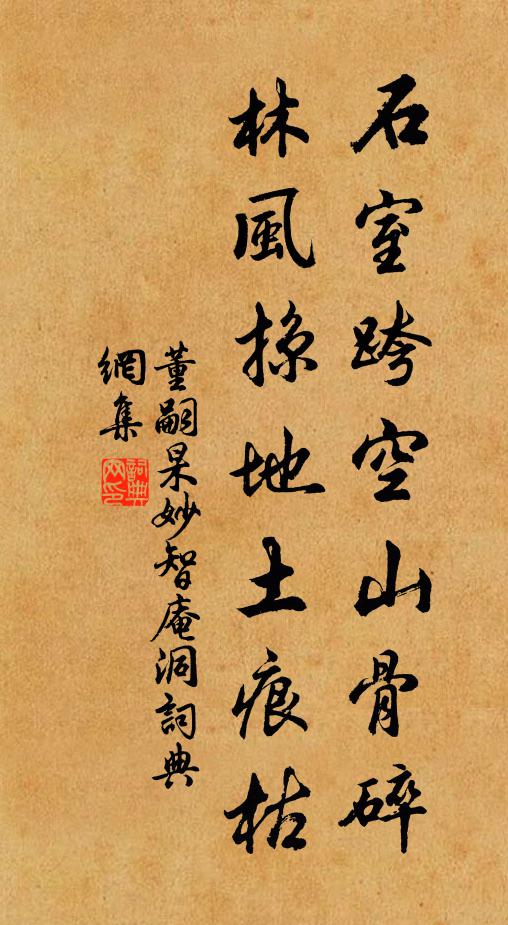 石室跨空山骨碎
林風掠地土痕枯
董嗣杲妙智庵洞詞典
網集
詞典
网印